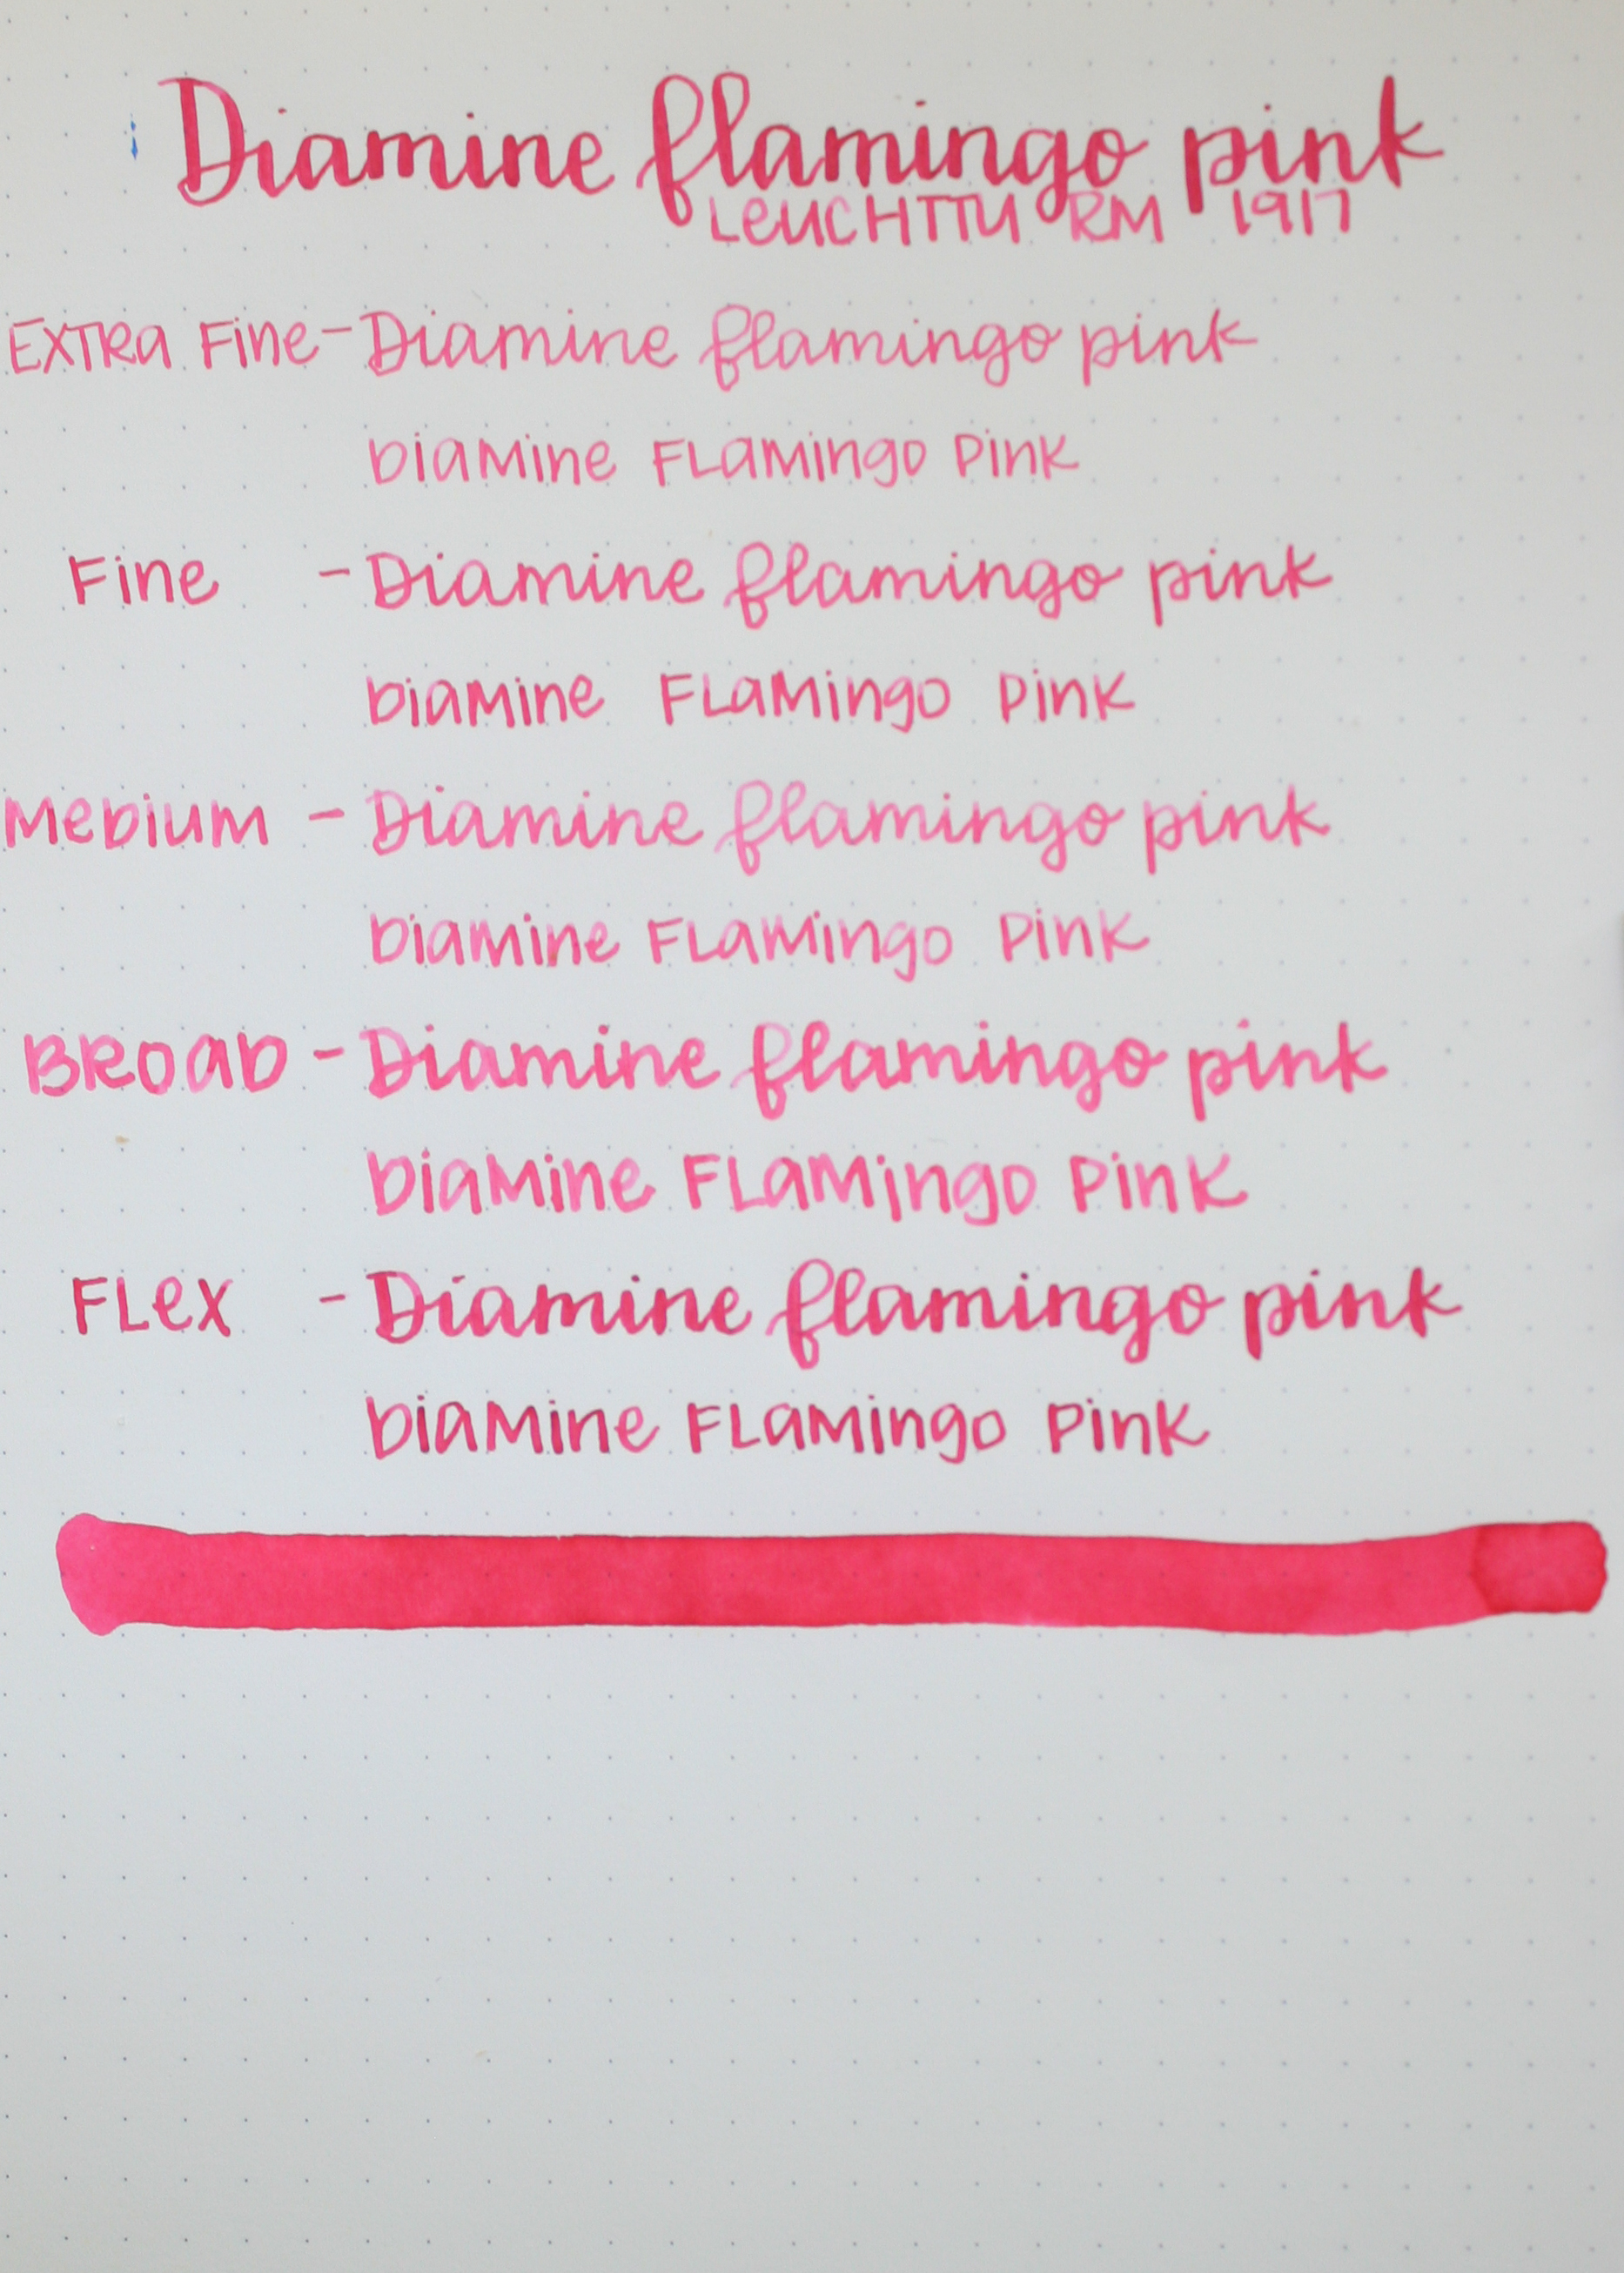 Diamine flamingo pink
LEUCHTTURM 1917
EXTRA FINE - Diamine flamingo pink
DIAMINE FLAMINGO PINK
FINE - Diamine flamingo pink
DIAMINE FLAMINGO PINK
MEDIUM - Diamine flamingo pink
DIAMINE FLAMINGO PINK
BROAD - Diamine flamingo pink
DIAMINE FLAMINGO PINK
FLEX - Diamine flamingo pink
DIAMINE FLAMINGO PINK